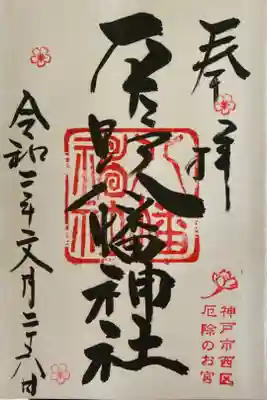 奉拝
神戸市西区
厄除のお宮
八幡神社
令和二年文月二十八日